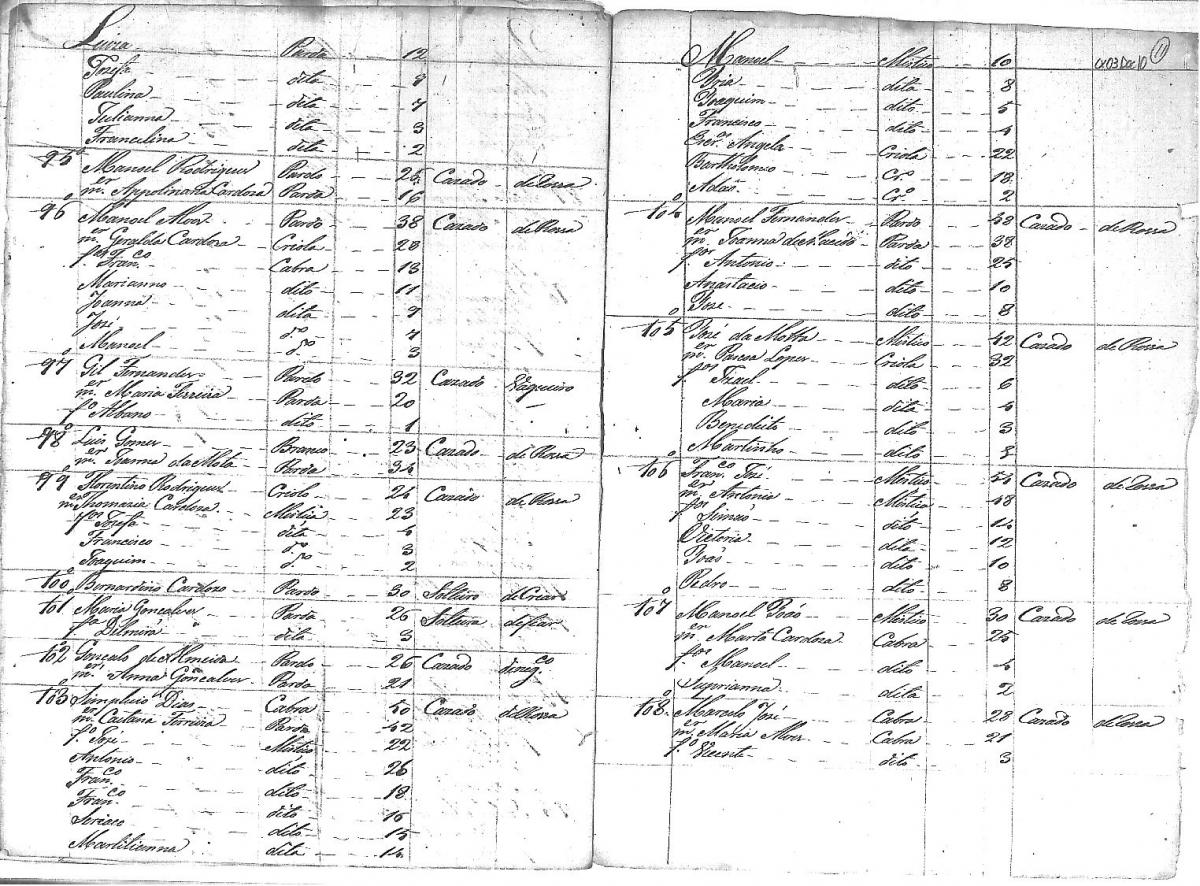 Luiza Parda 12
Jozefa dita 8
Paulina dita 7
Julianna dita 3
Francelina dita 2
95 Manoel Rodrigues Pardo 25 Cazado de Rossa
m.er Appolinaria Cardoza Parda 16
96 Manoel Alves Pardo 38 Cazado de Rossa
m.er Geralda Cardoza Criola 28
f.os Fran.co Cabra 13
Marianno dito 11
Joanna dita 9
José d.o 7
Manoel d.o 3
97 Gil Fernandes Pardo 32 Cazado Vaqueiro
m.er Maria Ferreira Parda 20
f.o Albano dito 1
98 Luis Gomes Branco 23 Cazado de Rossa
m.er Joanna da Mota Parda 34
99 Florentino Rodrigues Criolo 24 Cazado de Rossa
m.er Thomazia Cardoza Mistiça 23
f.os Jozefa dita 4
Francisco d.o 3
Joaquim d.o 2
100 Bernardino Cardozo Pardo 30 Solteiro de Criar
101 Maria Gonçalves Parda 26 Solteira de fiar
f.a Delmira dita 3
102 Gonçalo de Almeida Pardo 26 Cazado de neg.co
m.er Anna Gonçalves Parda 21
103 Simplicio Dias Cabra 50 Cazado de Rossa
m.er Caetana Ferreira Parda 42
f.o José Mistiço 22
Antonio dito 26
Fran.co dito 18
Fran.co dito 16
dito 15
dita 14
11
Manoel Mistiço 10
dita 8
Joaquim dito 5
Francisco dito 4
Angela Criola 22
Bartholomeo Cr.o 18
Adão Cr.o 2
104 Manoel Fernandes Pardo 48 Cazado de Rossa
m.er Joanna Parda 38
f.os Antonio dito 25
Anastacio dito 10
José dito 8
105 José da Motta Mistiço 42 Cazado de Rossa
m.er Lopes Criola 32
f.os Izael dito 6
Maria dita 4
Benedito dito 3
Martinho dito 3
106 Fran.co José Mistiço 54 Cazado de Rossa
m.er Antonia Mistiça 48
f.os Simão dito 14
Victoria dita 12
João dito 10
Pedro dito 8
107 Manoel João Mistiço 30 Cazado de Rossa
m.er Cardoza Cabra 25
f.os Manoel dito 4
Suprianna dita 2
108 Marcelo José Cabra 28 Cazado de Rossa
m.er Maria Alves Cabra 21
f.o Vicente dito 3